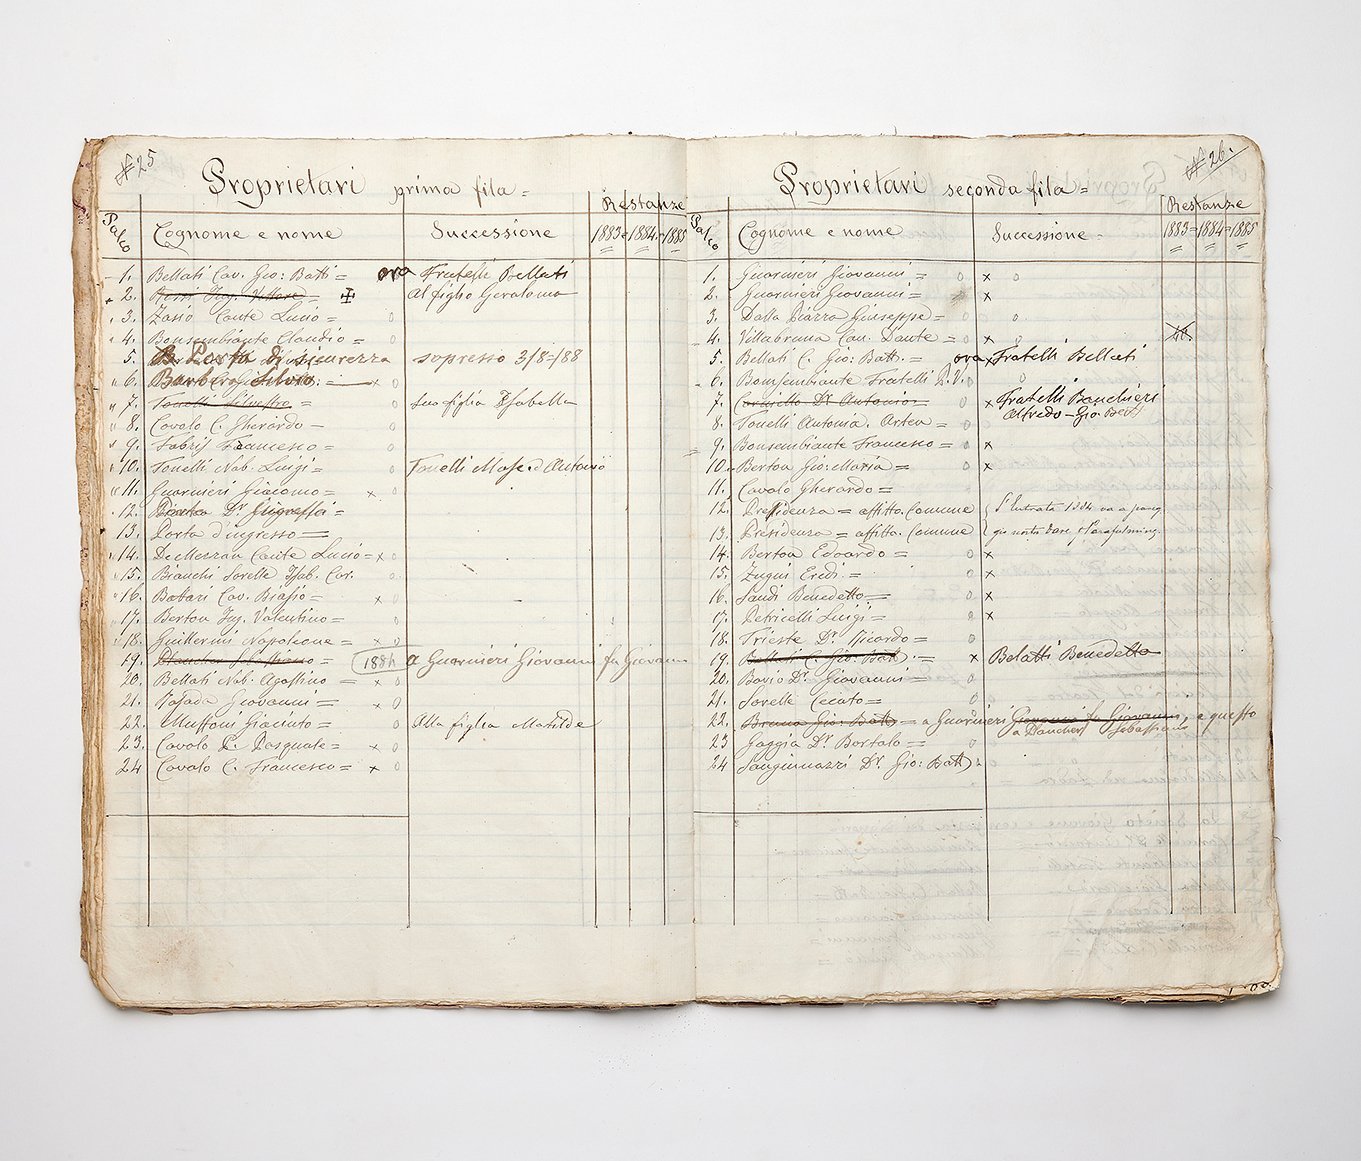 25
Proprietari prima fila =
Palco
Cognome e nome
Successione
Restanze
1883 = 1884 = 1885
1. Bellati Cav. Gio: Batti = ora Fratelli Bellati
2. Vettore = al figlio Gerolomo
3. Zasso Conte Lucio =
4. Bonsembiante Claudio =
5. Porta di sicurezza sopresso 3/8=188
6. Silvio =
7. Tonelli Silvestro = sua figlia Isabella
8. Cavalo C. Gherardo =
9. Fabris Francesco =
10. Tonelli Nob. Luigi = Tonelli Mase. d'Antonio
11. Guarnieri Giacomo = x
12. Dr =
13. Porta d'ingresso =
14. De Mezzan Conte Lucio = x
15. Bianchi Sorelle Isab. Car.
16. Cav. Biasio = x
17. Berton Ing. Valentino =
18. Guillermi Napoleone = x
19. 1884 a Guarnieri Giovanni fu Giovanni
20. Bellati Nob. Agostino = x
21. Giovanni = x
22. Muffoni Giacinto = Alla figlia Matilde
23. Cavalo P. Pasquale = x
24 Cavalo C. Francesco = x
26.
Proprietari seconda fila =
Palco
Cognome e nome
Successione
Restanze
1883 = 1884 = 1885
1. Guarnieri Giovanni = x
2. Guarnieri Giovanni = x
3. Dalla Piazza Giuseppe =
4. Villabruna Cav. Dante = x
5. Bellati C. Gio: Batt. = ora x Fratelli Bellati
6. Bonsembiante Fratelli
7. Dr Antonio = x Fratelli Banchieri
Alfredo - Gio. Batt
8. Tonelli Antonia
9. Bonsembiante Francesco = x
10. Bertoa Gio. Maria = x
11. Cavalo Gherardo =
12. Presidenza = affitta. Comune L'Entrata 1884 va a pang
13. Presidenza = affitta. Comune
14. Bertoa Edoardo = x
15. Zugni Eredi = x
16. Sandi Benedetto = x
17. Petricelli Luigi = x
18. Trieste Dr. Ricardo =
19. Bellati C. Gio: Batt = x Belatti Benedetto
20. Bovio Dr. Giovanni =
21. Sorelle Cecato =
22. Gio: Batt = a Guarnieri Giovanni fu Giovanni, e questo
a Sebastiani
23 Gaggia Dr. Bortolo =
24 Sanguinazzi Dr. Gio: Batt